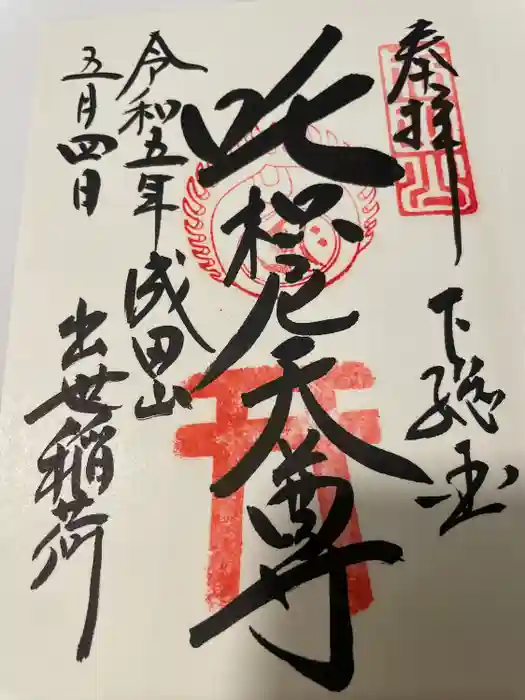 奉拝
下総国
吒枳尼天尊
成田山
出世稲荷
令和五年
五月四日